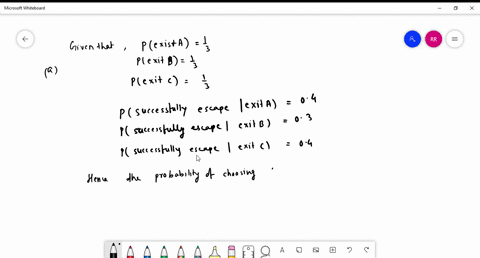 Microsoft Whiteboard
RR
Given that, P(exist A) = 1/3
(a)
P(exit B) = 1/3
P(exit C) = 1/3
P(successfully escape | exit A) = 0.4
P(successfully escape | exit B) = 0.3
P(successfully escape | exit C) = 0.4
Hence the probability of choosing